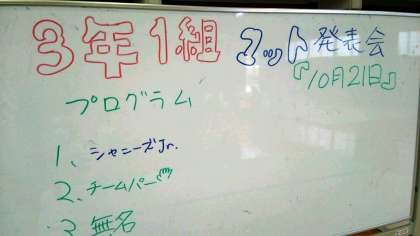 3年1組 マット発表会
『10月21日』
プログラム
1、シャニーズJr.
2、チームパー
3、無名